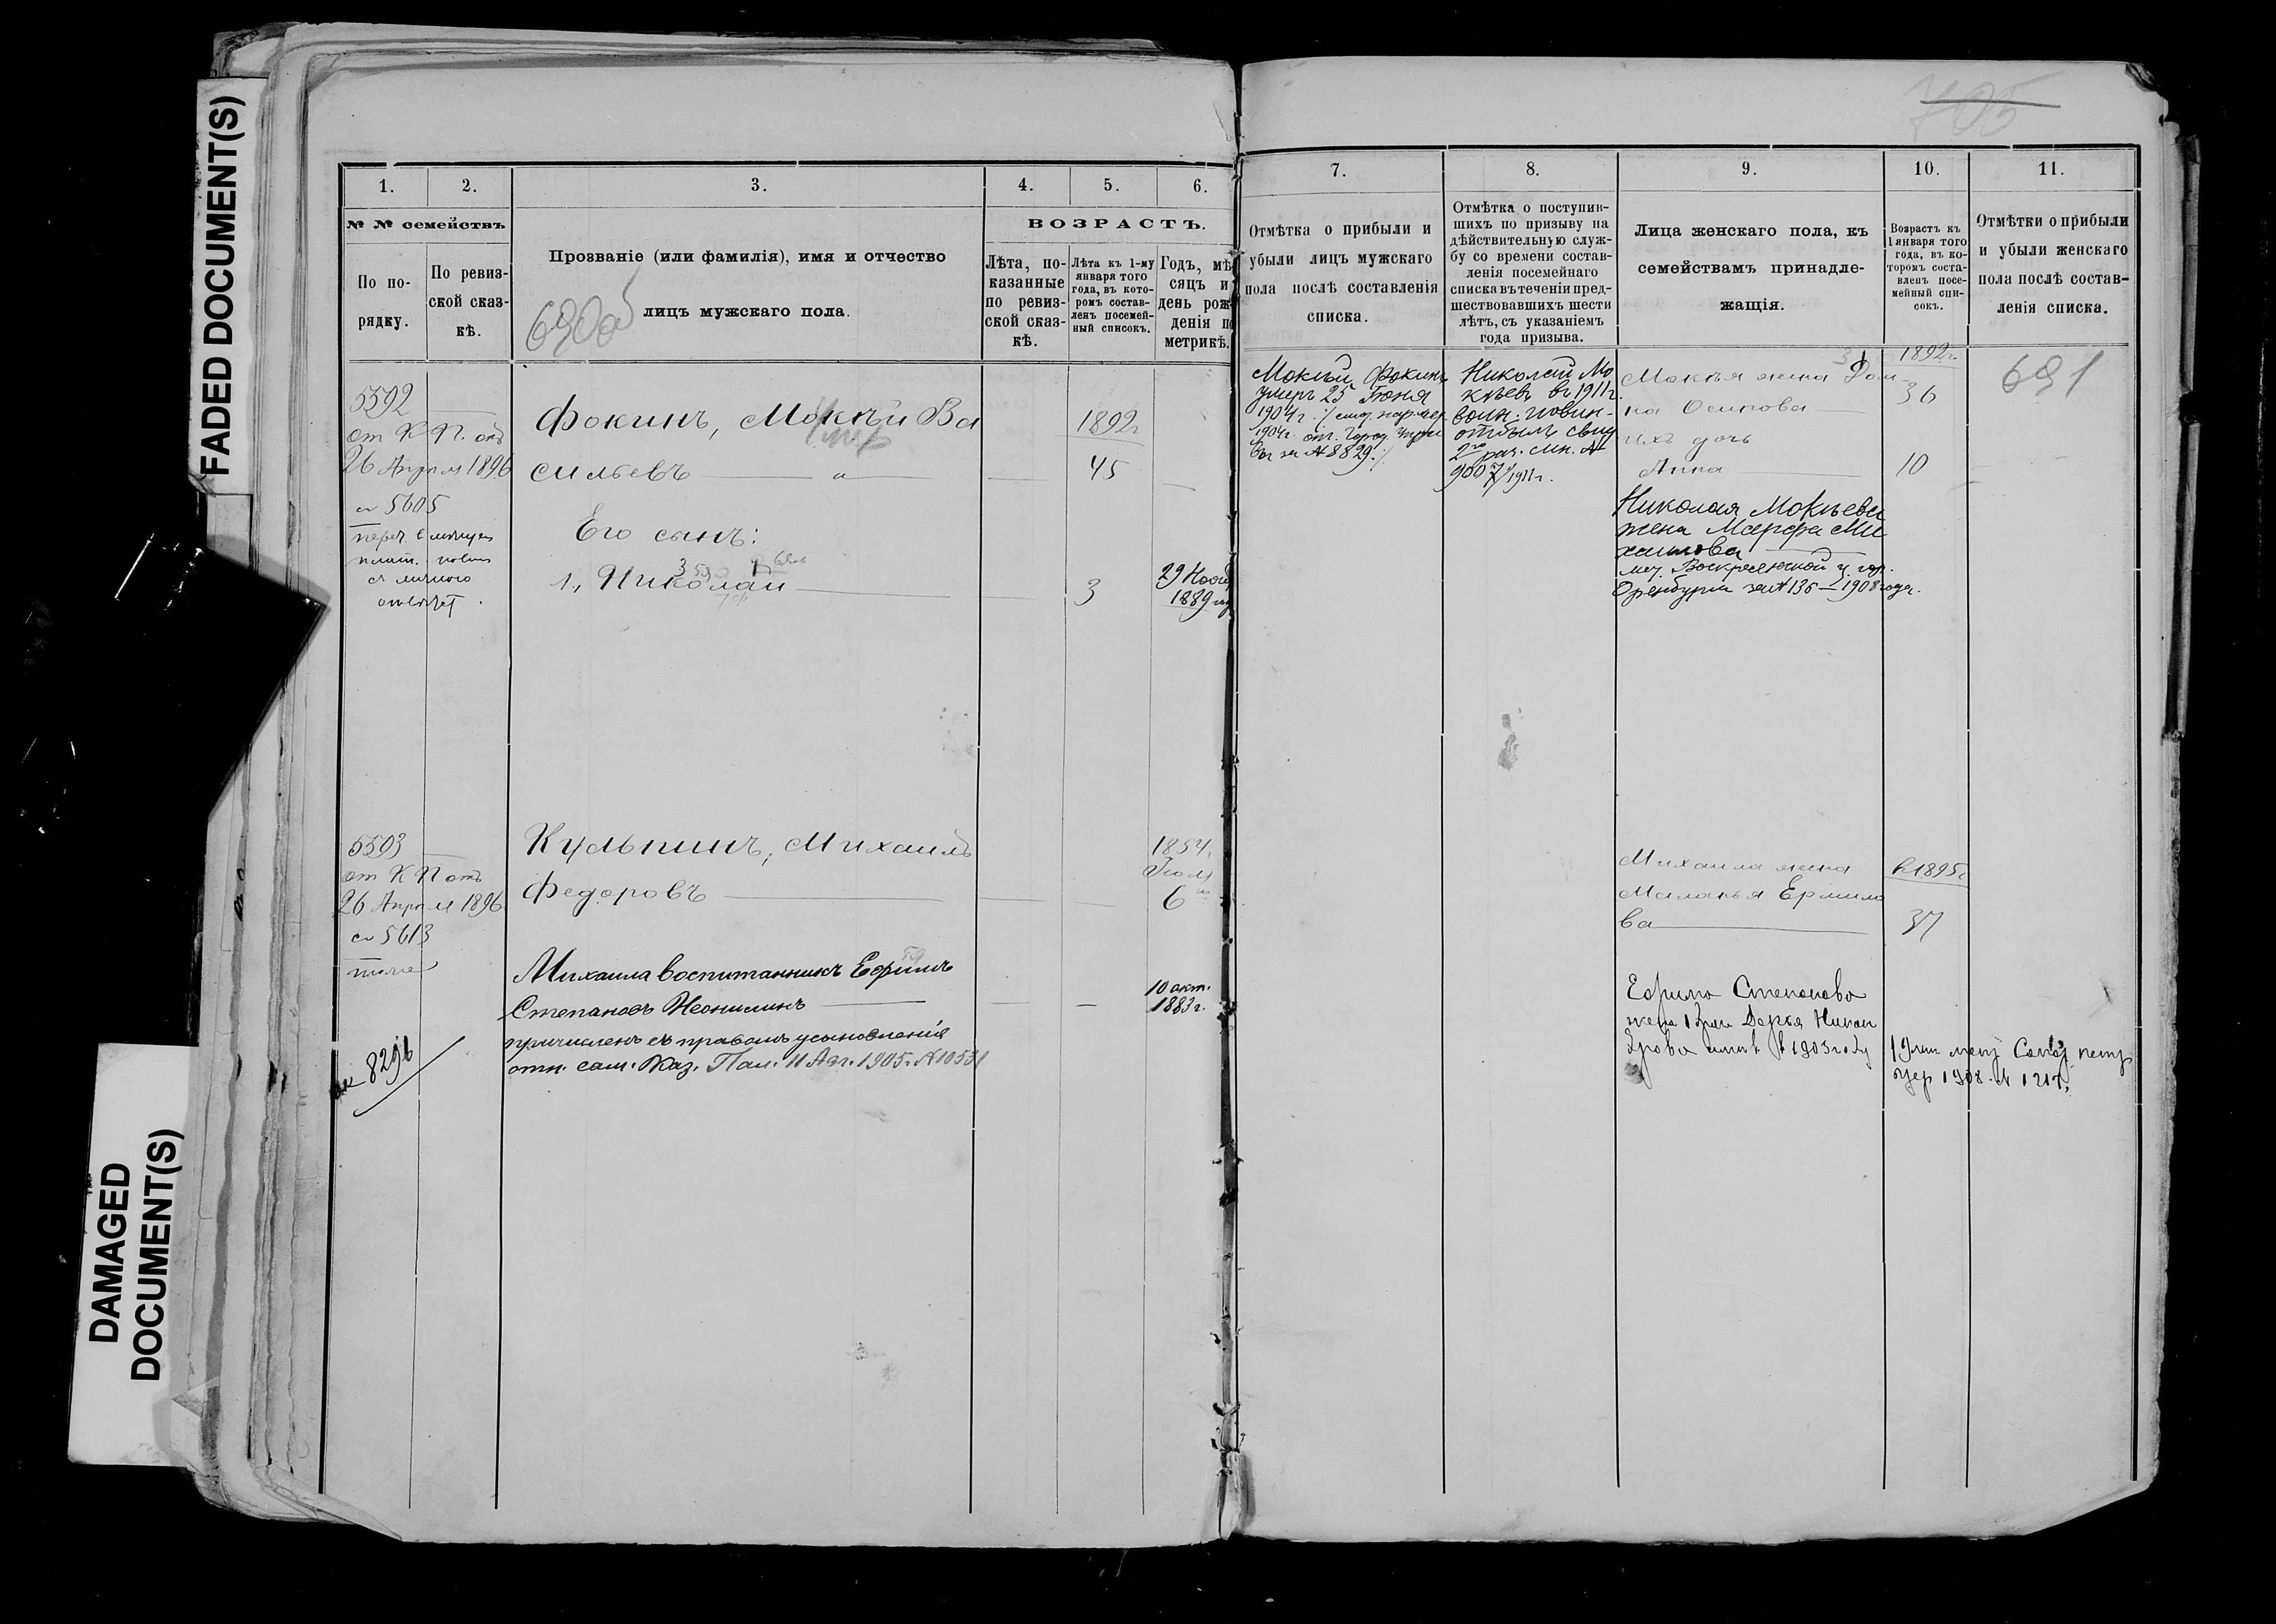 FADED DOCUMENT(S)
DAMAGED
DOCUMENT(S)
705
1.
2.
3.
4.
5.
6.
№ № семействъ
По по-
рядку.
По ревиз-
ской сказ-
кѣ.
Прозваніе (или фамилія), имя и отчество
лицъ мужскаго пола.
690об
ВОЗРАСТЪ.
Лѣта, по-
казанные
по ревиз-
ской сказ-
кѣ.
Лѣта къ 1-му
января того
года, въ кото-
ромъ состав-
ленъ посемей-
ный списокъ.
Годъ, мѣ
сяцъ и
день рож
денія п
метрикѣ.
5592
от К П. отъ
26 Апрѣля 1896
за 5605
Фокинъ, Мокѣй Ва
умер
сильевъ
1892г
45
Его сынъ:
1, Николай
3
29 Нояб
1889 г
5593
от К П отъ
26 Апрѣля 1896
за 5613
тоже
8296
Кульпинъ, Михаилъ
Федоровъ
1854
6
Михаила воспитанникъ Ефимъ
Степановъ Неонилинъ
10 окт.
1883г.
причисленъ съ правомъ усыновленія
отн. сам. Каз. Пал. 11 Авг. 1905г. № 10531
7.
8.
9.
10.
11.
Отмѣтка о прибыли и
убыли лицъ мужскаго
пола послѣ составленія
списка.
Отмѣтка о поступив-
шихъ по призыву на
дѣйствительную служ-
бу со времени состав-
ленія посемейнаго
списка въ теченіи пред-
шествовавшихъ шести
лѣтъ, съ указаніемъ
года призыва.
Лица женскаго пола, къ
семействамъ принадле-
жащія.
Возрастъ къ
1 января того
года, въ ко-
торомъ соста-
вленъ посе-
мейный спи-
сокъ.
Отмѣтки о прибыли
и убыли женскаго
пола послѣ состав-
ленія списка.
691
Мокѣй Фокинъ
умеръ 25 Іюня
1904 г.
1904г. отн. Город. Упра
вы за № 8829.
Николай Мо
кѣевъ въ 1911г.
воин. повин-
отбылъ свид
2го раз.
9007/1911г.
Мокѣя жена Дом
на Осипова
1892г.
36
ихъ дочь
Анна
10
Николая Мокѣева
жена Марфа Ми
хаилова
мет. Воскресенской ц. гор.
Оренбурга за № 136 1908 года.
Михаила жена
Маланья Ермило
ва
в 1895г
37
Ефима Степанова
жена Дарья Никан
дрова
в 1903 году
1908 № 1217